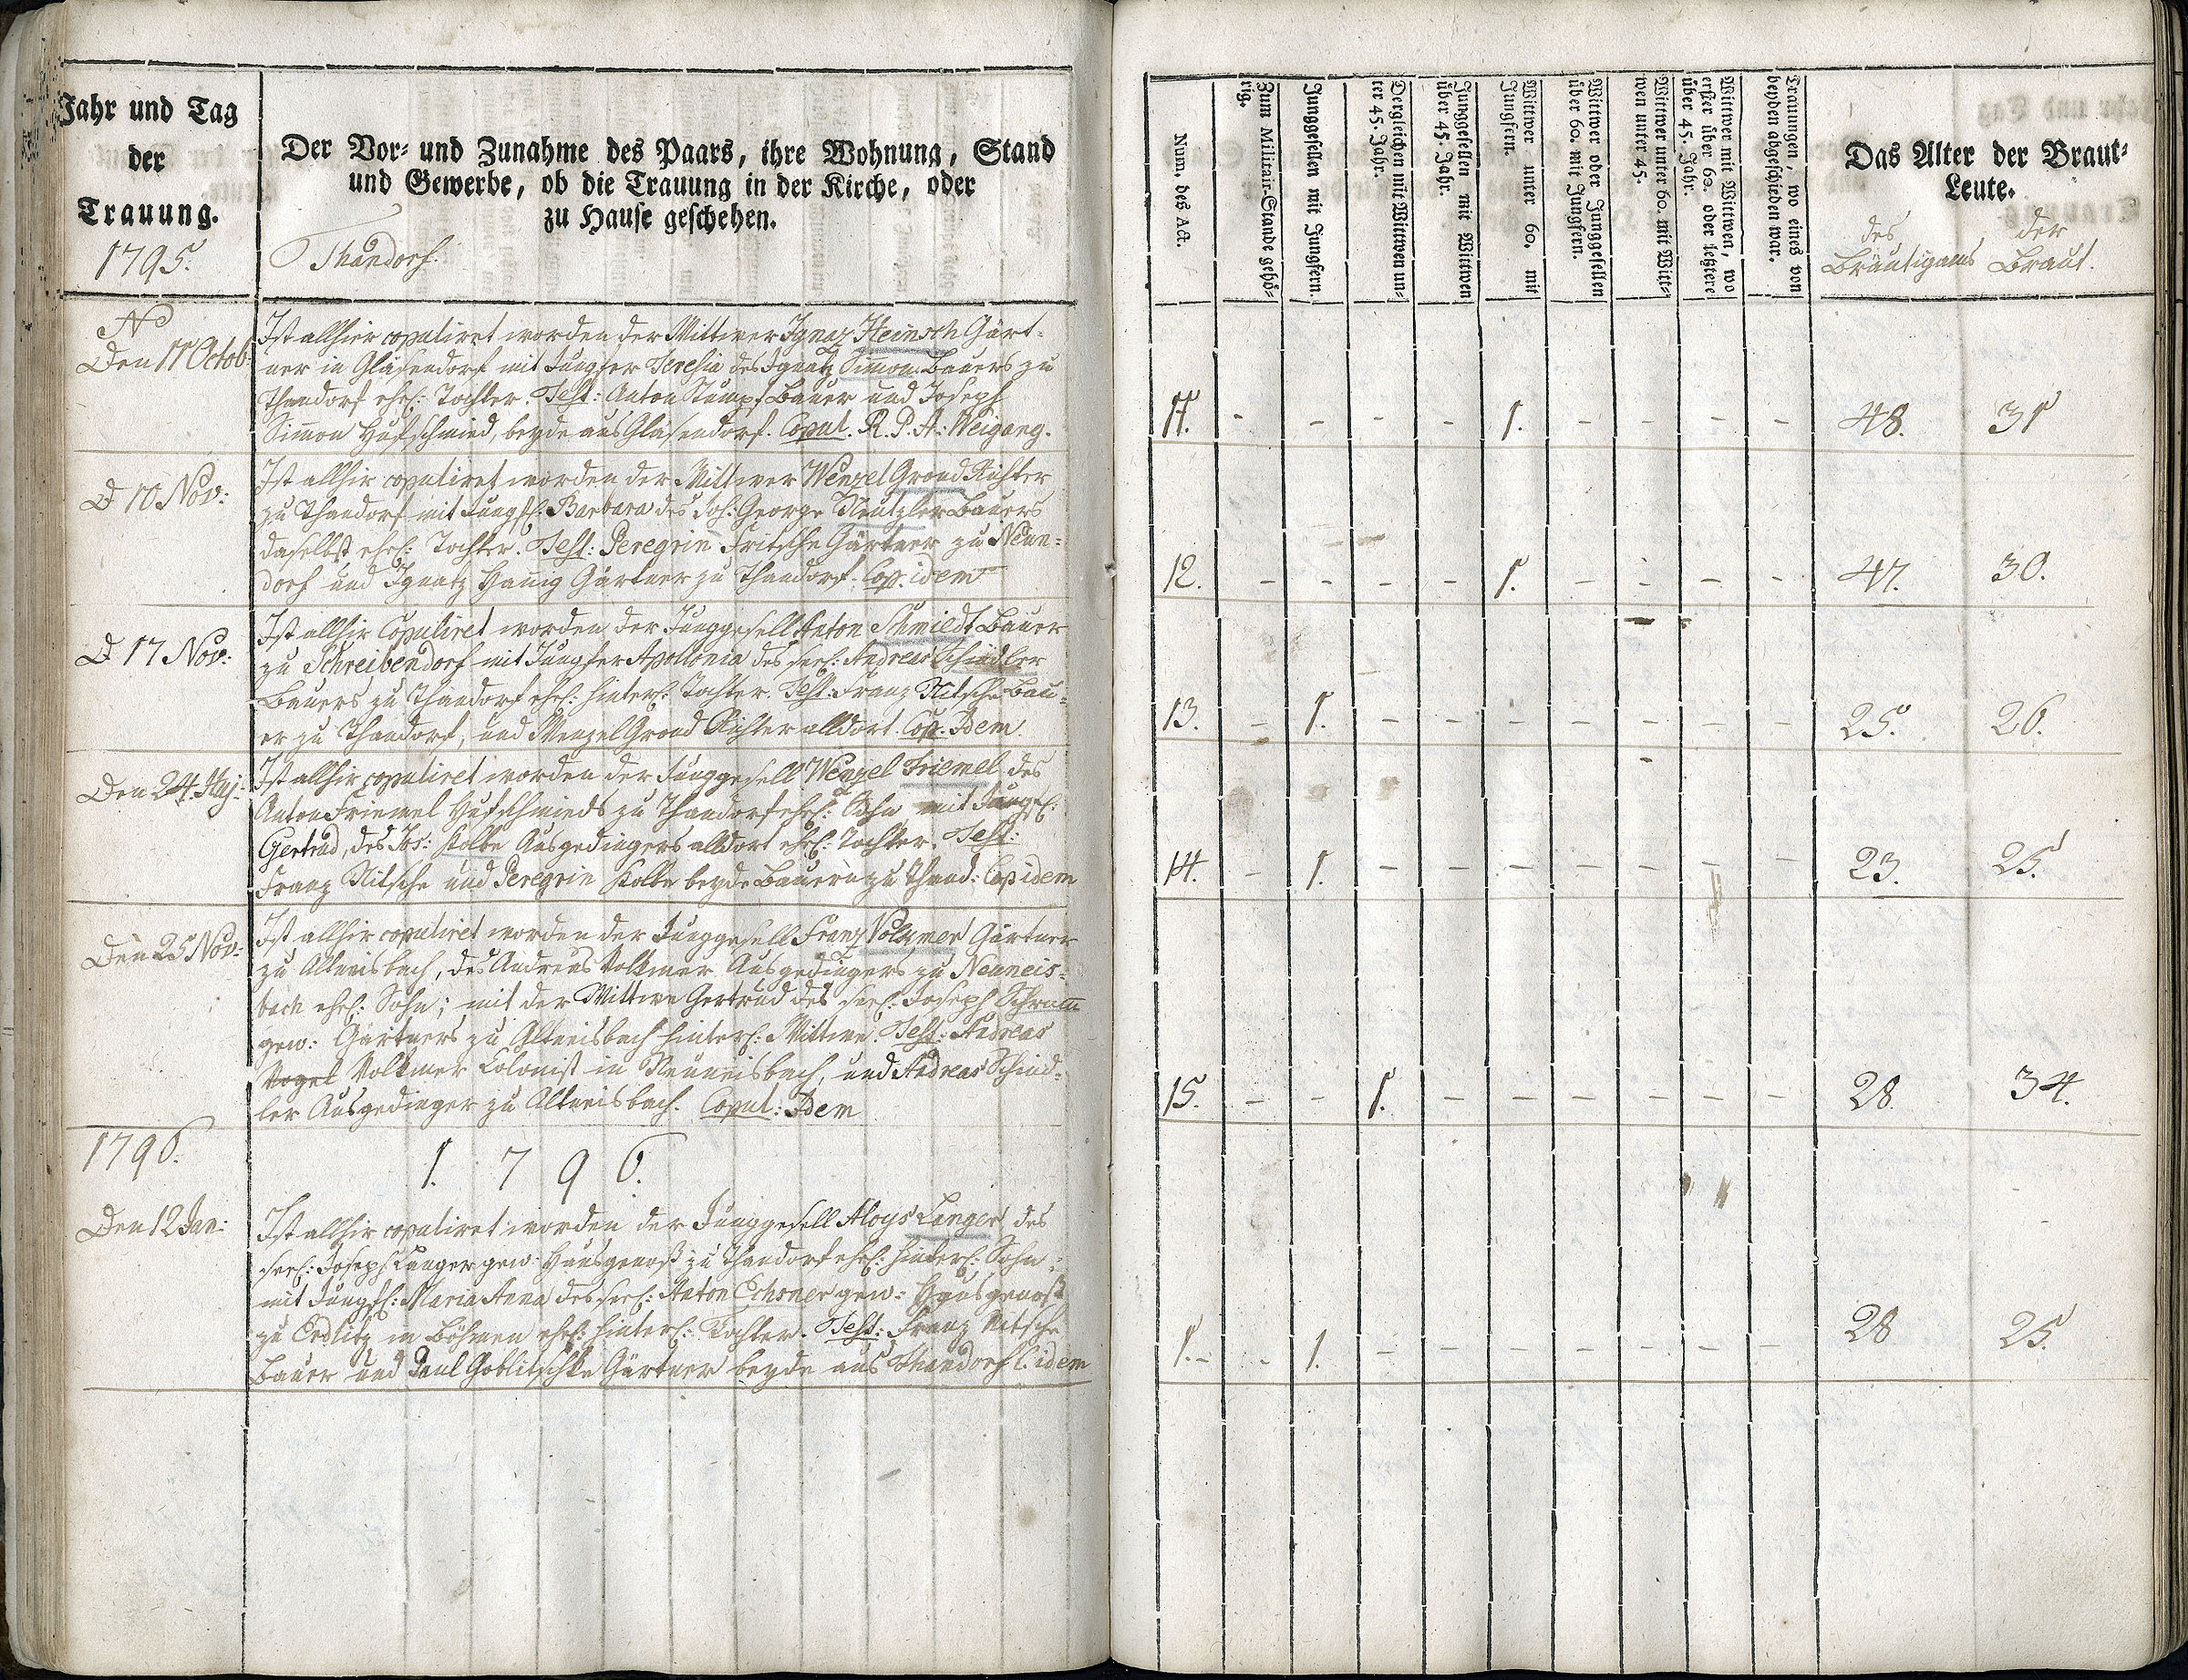 Jahr und Tag
der
Trauung.
1795.
Der Vor- und Zunahme des Paars, ihre Wohnung, Stand
und Gewerbe, ob die Trauung in der Kirche, oder
zu Hause geschehen.
Thandorf.
Den 11 Octob:
Ist allhier copuliret worden der Wittwer Ignaz Heinsch Gärt-
ner in Gläsendorf mit Jungfer Teresia des Ignatz Simon Bauers zu
Thandorf ehel: Tochter. Test: Anton Stumpf Bauer und Joseph
Simon Hufschmied, beyde aus Gläsendorf. Copul. R. P. A: Weigang.
D 10 Nov:
Ist allhir copuliret worden der Wittwer Wenzel Grond Richter
zu Thandorf mit Jungf: Barbara des Joh: George Neutzler Bauers
daselbst ehel: Tochter. Test: Peregrin Fritsche Gärtner zu Neun-
dorf und Ignatz Hannig Gärtner zu Thandorf. Cop. idem
D 17 Nov:
Ist allhir Copuliret worden der Junggesell Anton Schmiedt Bauer
zu Schreibendorf mit Jungfer Apollonia des seel: Andreas Schindler
Bauers zu Thandorf ehel: hinterl: Tochter. Test: Franz Nitsche Bau-
er zu Thandorf, und Wenzel Grond Richter alldort. Cop. Idem
Den 24. Huj:
Ist allhir copuliret worden der Junggesell Wenzel Friemel des
Anton Friemel Hufschmieds zu Thandorf ehel: Sohn mit Jungf:
Gertrud, des Jos: Kolbe Ausgedingers alldort ehel: Tochter. Test:
Franz Nitsche und Peregrin Kolbe beyde Bauern zu Thand: Cop idem
Den 25 Nov:
Ist allhir copuliret worden der Junggesell Franz Volkmer Gärtner
zu Altneisbach, des Andreas Volkmer Ausgedingers zu Neuneis-
bach ehel: Sohn; mit der Wittwe Gertrud des seel: Joseph Schram
gew: Gärtners zu Altneisbach hinterl: Wittwe. Test: Andreas
Vogel Volkmer Colonist in Neuneisbach, und Andreas Schind-
ler Ausgedinger zu Altneisbach. Copul: Idem
1796.
1. 7 9 6.
Den 12 Jan:
Ist allhir copuliret worden der Junggesell Aloys Langer des
seel: Joseph Langer gew: Hausgenoß zu Thandorf ehel: hinterl: Sohn
mit Jungf: Maria Anna des seel: Anton gew: Hausgenoß
zu Erdlitz in Böhmen ehel: hinterl: Tochter. Test: Franz Nitsche
Bauer und Paul Goblitschke Gärtner beyde aus Thandorf C. idem
Num. des Act.
Zum Militair-Stande gehö-
rig.
Junggesellen mit Jungfern.
Dergleichen mit Wittwen un-
ter 45. Jahr.
Junggesellen mit Wittwen
über 45. Jahr.
Wittwer unter 60. mit
Jungfern.
Wittwer oder Junggesellen
über 60. mit Jungfern.
Wittwer unter 60. mit Witt-
wen unter 45.
Wittwer mit Wittwen, wo
erster über 60. oder letztere
über 45. Jahr.
Trauungen, wo eines von
beyden abgeschieden war.
Das Alter der Braut-
Leute.
des
Bräutigams
der
Braut.
11. - - - - 1. - - - - 48. 31
12. - - - - 1. - - - - 47. 30.
13. - 1. - - - - - - - 25. 26.
14. - 1. - - - - - - - 23. 25.
15. - - 1. - - - - - - 28 34.
1. - - 1. - - - - - - - 28 25.